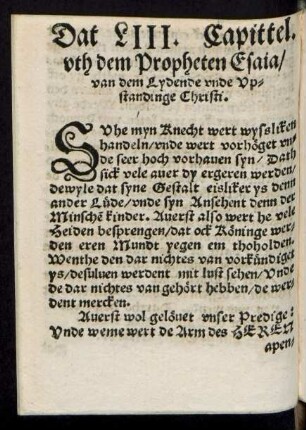 Dat LIII. Capittel.
vth dem Propheten Esaia/
van dem Lydende vnde Vp-
standinge Christi.
SVhe myn Knecht wert wyssliken
handeln/vnde wert vorhöget vn-
de seer hoch vorhauen syn/ Dath
sick vele auer dy ergeren werden/
dewyle dat syne Gestalt eisliker ys denn
ander Lüde/vnde syn Ansehent denn der
Minschē kinder. Auerst also wert he vele
Heiden besprengen/dat ock Köninge wer-
den eren Mundt yegen em tholholden.
Wenthe den dar nichtes van vorkündiget
ys/desüluen werdent mit lust sehen/Vnde
de dar nichtes van gehört hebben/de wer-
dent mercken.
Auerst wol gelöuet vnser Predige:
Vnde weme wert de Arm des HEREN
apen/